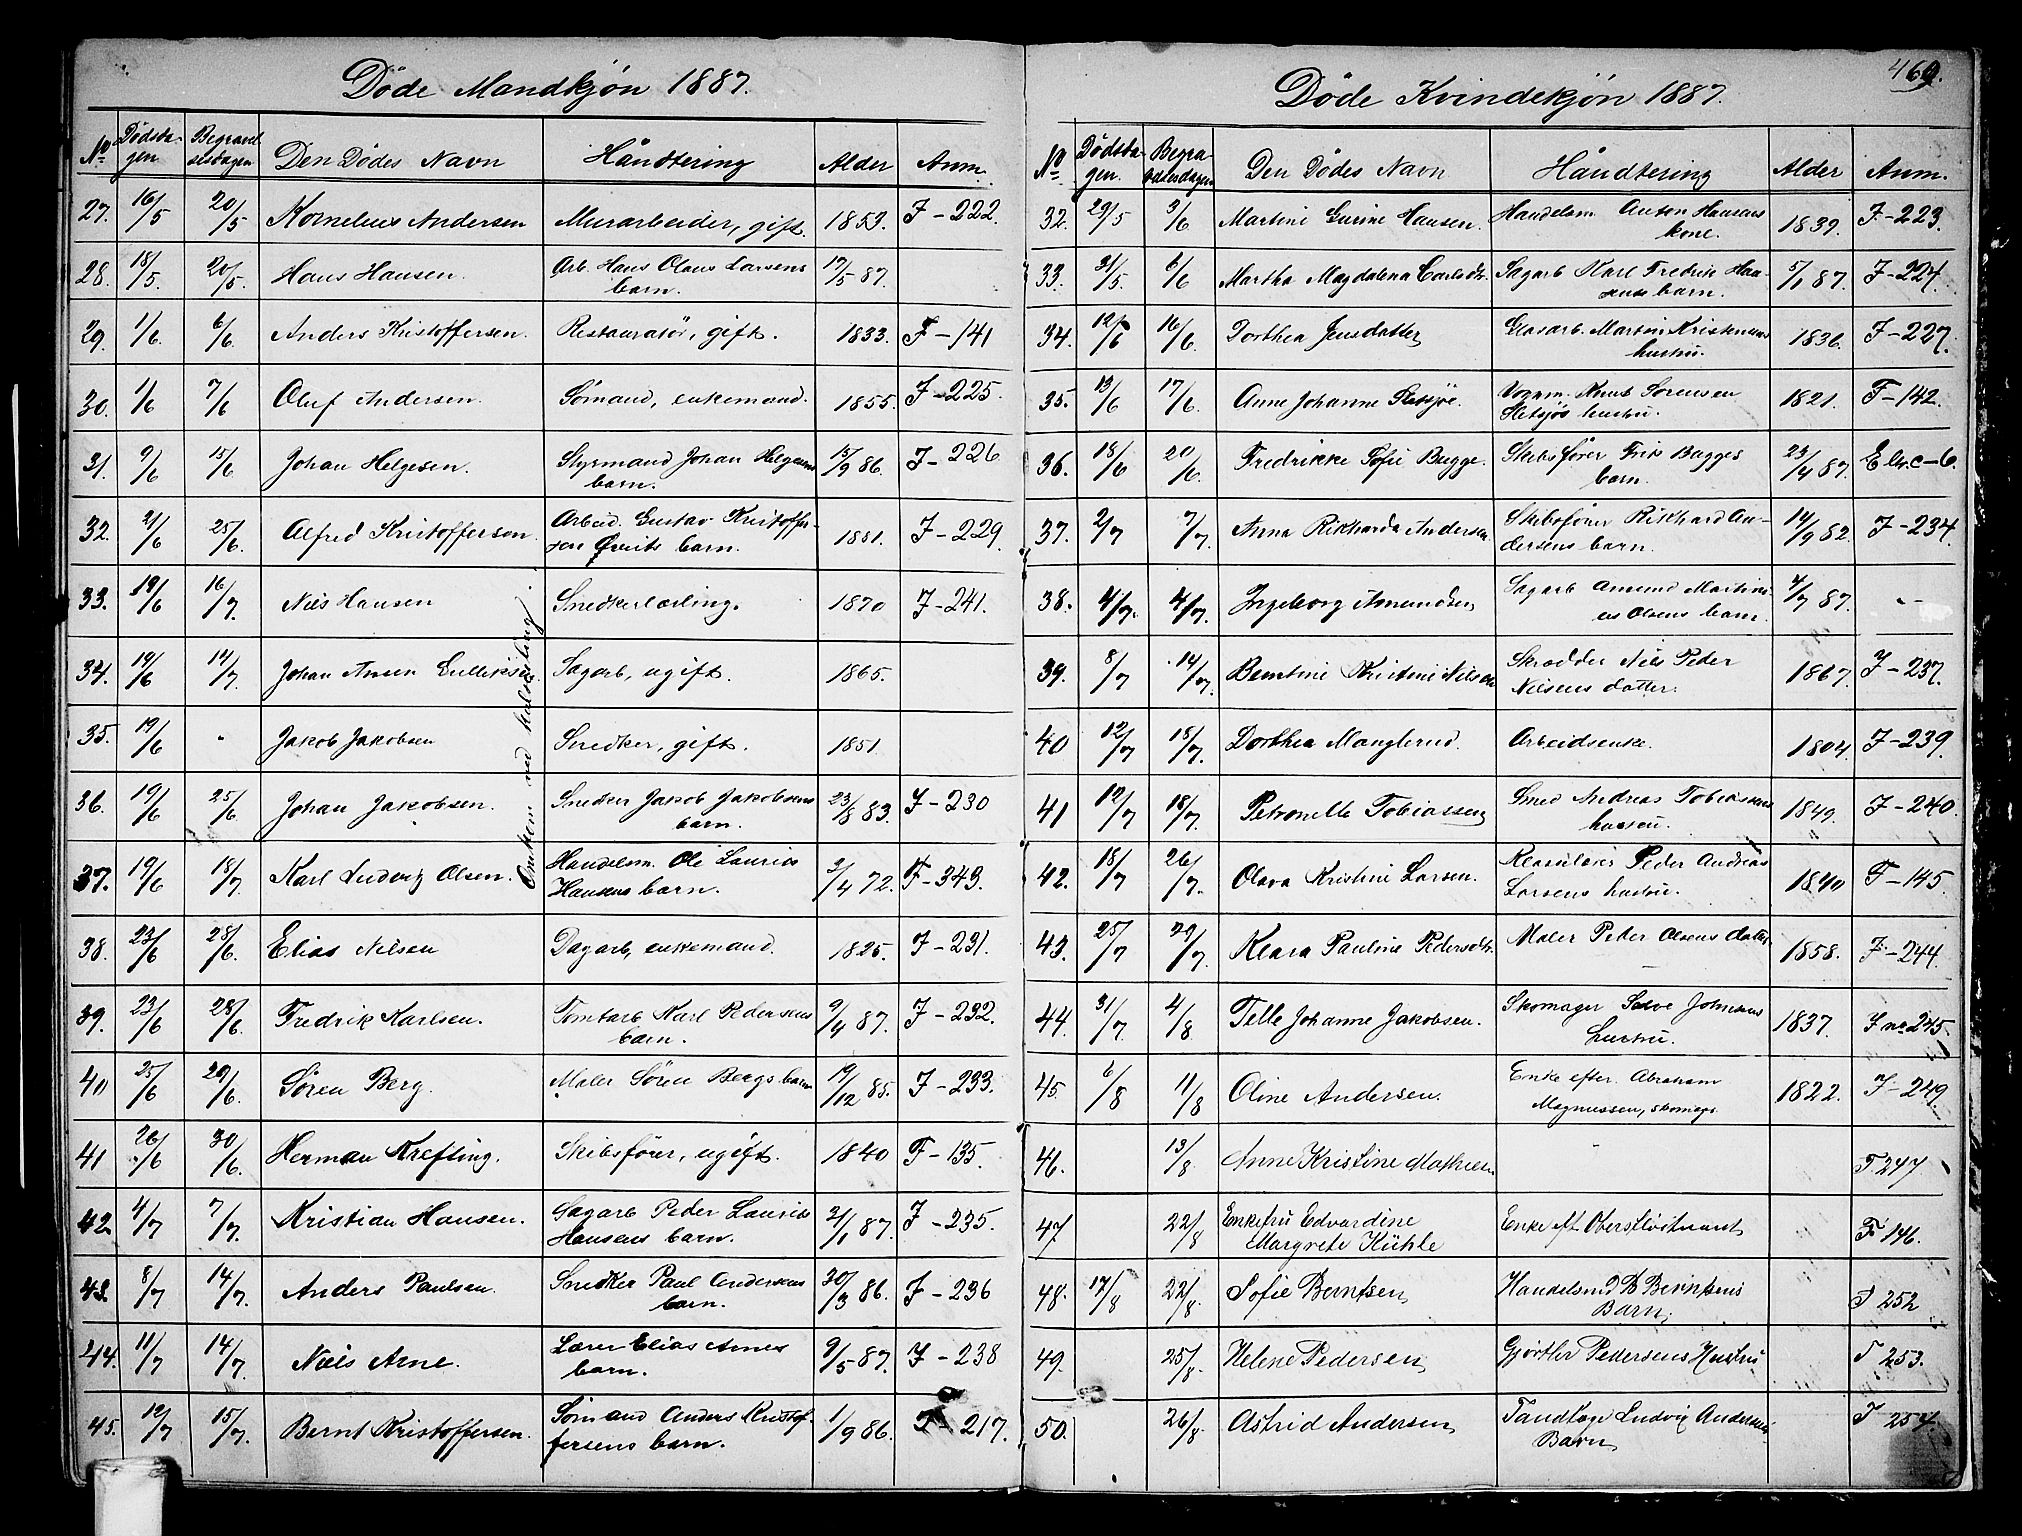 469.
Døde Mandkjøn 1887.
No Dødsda- Begravel
gen selsdagen Den Dødes Navn Håndtering Alder Anm.
27. 16/5 20/5 Kornelius Andersen Murarbeider, gift. 1853. J-222.
28. 18/5. 20/5. Hans Hansen. Arb. Hans Olaus Larsens 17/5 87.
barn.
29. 1/6. 6/6. Anders Kristoffersen. Restauratør, gift. 1833. F-141
30. 1/6 7/6 Oluf Andersen. Sømand, enkemand. 1855. J-225.
31. 9/6 15/6. Johan Helgesen. Styrmand Johan Helgesens 15/9 86. J-226
barn.
32. 21/6 25/6. Alfred Kristoffersen Arbeid. Gustav Kristoffer- 1881. J-229.
sen Qverits barn.
33. 19/6 16/7. Nils Hansen Snedkerlærling. 1870 J-241.
34. 19/6 14/7. Johan Ansen Gulliksen Sagarb, ugift. 1865.
35. 19/6 " Jakob Jakobsen Snedker, gift. 1851
Omkom ved kulseiling.
36. 19/6 25/6. Johan Jakobsen. Snedker Jakob Jakobsens 23/8 83. J-230
barn.
37. 19/6 18/7. Karl Ludvig Olsen. Handelsm. Ole Laurits 3/4 72. F-343.
Hansens barn.
38. 23/6 28/6. Elias Nilsen Dagarb, enkemand. 1825. J-231.
39. 23/6 28/6. Fredrik Karlsen. Tomtarb Karl Pedersens 9/4 87. J-232.
barn.
40 25/6 29/6. Søren Berg. Maler Søren Bergs barn 19/12 85. J-233.
41 26/6 30/6. Herman Krefting. Skibsfører, ugift. 1840 F-135.
42 4/7 7/7. Kristian Hansen. Sagarb Peder Laurits 21/1 87. J-235.
Hansens barn.
43. 8/7 14/7. Anders Paulsen. Snedker Paul Andersens 30/3 86. J-236
barn.
44. 11/7 14/7. Niels Arne. Lærer Elias Arnes 9/5 87. J-238
barn.
45. 12/7 15/7. Bernt Kristoffersen. Sømand Anders Kristof- 1/9 86. J-217.
fersens barn.
Døde Kvindekjøn 1887.
No Dødsda- Begra-
gen. velsesdagen Den Dødes Navn Håndtering Alder Anm.
32. 29/5 3/6 Martine Gurine Hansen. Handelsm Anton Hansens 1839. J-223.
kone.
33. 31/5. 6/6 Martha Magdalena Carlsdtr. Sagarb Karl Fredrik Han- 5/1 87. J-224.
sens barn.
34. 12/6 16/6. Dorthea Jensdatter Glasarb. Martin Kristensens 1836. J-227.
hustru.
35. 13/6 17/6. Anne Johanne Sletsjøe. Vognm. Knut Sørensen 1821. F-142.
Sletsjøs hustru.
36. 18/6 20/6. Fredrikke Sofie Bugge. Skibsfører Erik Bugges 23/4 87. E litr. c-6.
barn.
37. 2/7 7/7. Anna Rikharda Andersen Skibsfører Rikhard An- 14/9 82. J-234.
dersens barn.
38. 4/7. 4/7. Ingeborg Amundsen Sagarb Amund Martini- 4/7 87. "
us Olsens barn.
39. 8/7 14/7. Berntine Kristine Nilsen Skrædder Nils Peder 1867. J-237.
Nilsens datter.
40 12/7 18/7. Dorthea Manglerud. Arbeidsenke. 1804. J-239.
41 12/7 18/7. Petronelle Tobiassen Smed Andreas Tobiassens 1849. J-240.
hustru.
42. 18/7 26/7. Olava Kristine Larsen. Peder Andreas 1840 F-145.
Larsens hustru.
43. 25/7 29/7. Klara Pauline Pedersdtr. Maler Peder Olsens datter 1858. J-244.
44. 31/7. 4/8 Telle Johanne Jakobsen. Skomager Salve Johnsens 1837. J no 245.
hustru.
45. 6/8 11/8 Oline Andersen. Enke efter Abraham 1822. J-249.
Magnussen, skomager
46. 13/8. Anne Kristine Mathisen " J 247
47 22/8 Enkefru Edvardine Enke eft Oberstløitnant F 146.
Margrete Kühle
48. 17/8 22/8. Sofie Berntsen, Handelsmd B Berntsens J 252
Barn,
49. 25/8. Helene Pedersen, Gjørtler Pedersens Hustru J 253.
50. 26/8. Astrid Andersen, Tandlæge Ludvig Andersens J 254.
Barn,